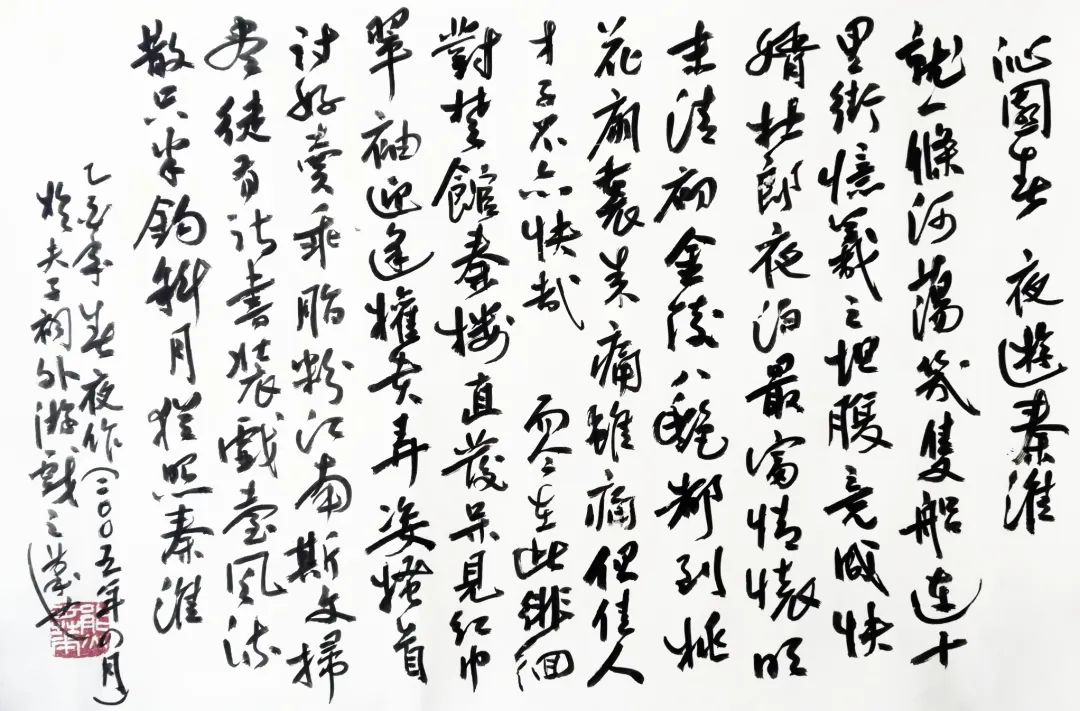 沁園春 夜遊秦淮
就一條河蕩幾隻船連十
里街憶羲之坦腹竟成快
婿杜郎夜泊最富情懷明
末清初金陵八艷都到桃
花扇裏來痛雖痛但佳人
才子不亦快哉 而今在此徘徊
對楚館秦樓直發呆見紅巾
翠袖迎逢權貴弄姿搔首
討好賣乖脂粉江南斯文掃
盡徒有詩書裝戲臺風流
散只半鈎斜月猶照秦淮
乙酉年春夜作(二〇〇五年四月)
於夫子祠外游戲之